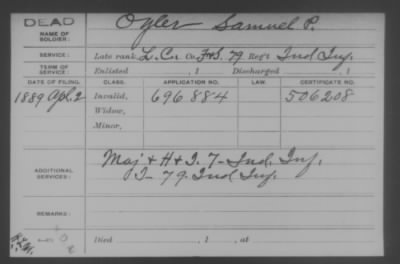 DEAD
NAME OF SOLDIER: Oyler Samuel P.
SERVICE: Late rank, L. Col Co. F&S. 79 Reg't Ind Inf.
TERM OF SERVICE: Enlisted , 1 Discharged , 1
DATE OF FILING. CLASS. APPLICATION NO. LAW. CERTIFICATE NO.
1889 Apl. 2 Invalid, 696884 506208
Widow,
Minor,
ADDITIONAL SERVICES: Maj + H + I. 7- Ind. Inf.
I- 79- Ind Inf.
REMARKS:
Died , 1 , at